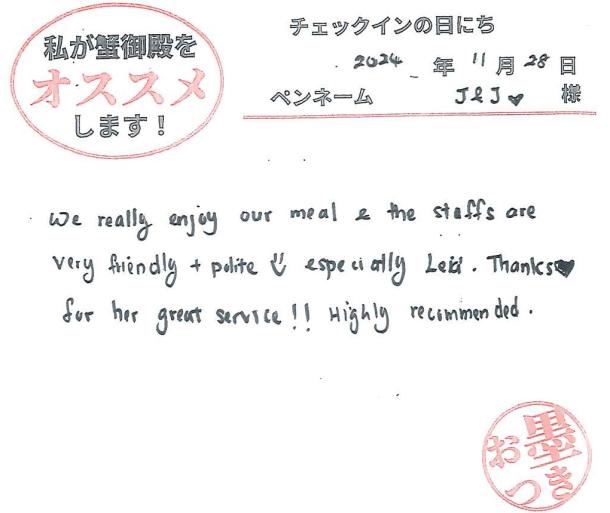 私が蟹御殿を
オススメ
します！
チェックインの日にち
2024 年 11 月 28 日
ペンネーム J & J ♥ 様
We really enjoy our meal & the staffs are
very friendly + polite especially . Thanks ♥
for her great service!! Highly recommended.
お墨
つき